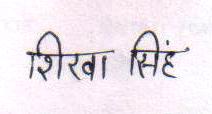 शिखा सिंह